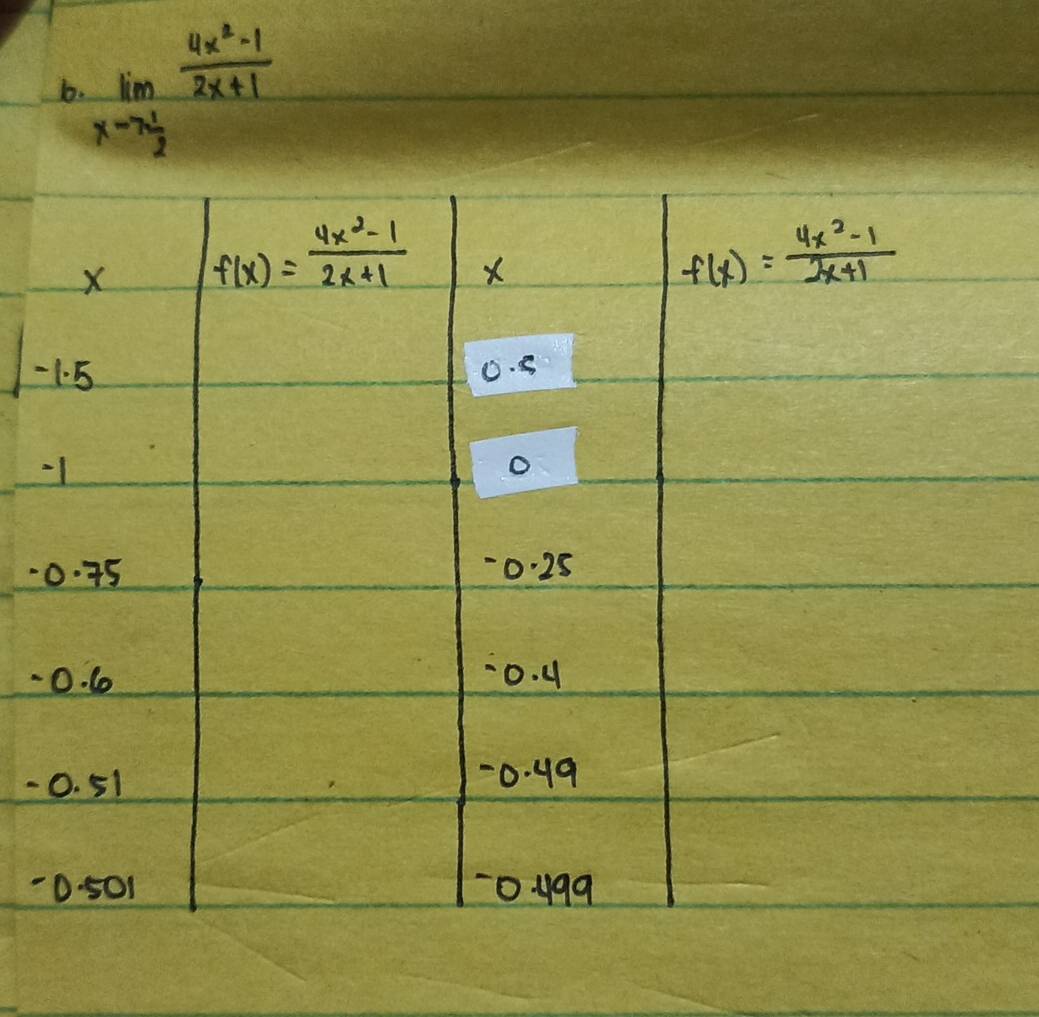 b. lim 4x²-1 / 2x+1
x→-1/2
x f(x) = 4x²-1 / 2x+1 x f(x) = 4x²-1 / 2x+1
-1.5 0.5
-1 0
-0.75 -0.25
-0.6 -0.4
-0.51 -0.49
-0.501 -0.499